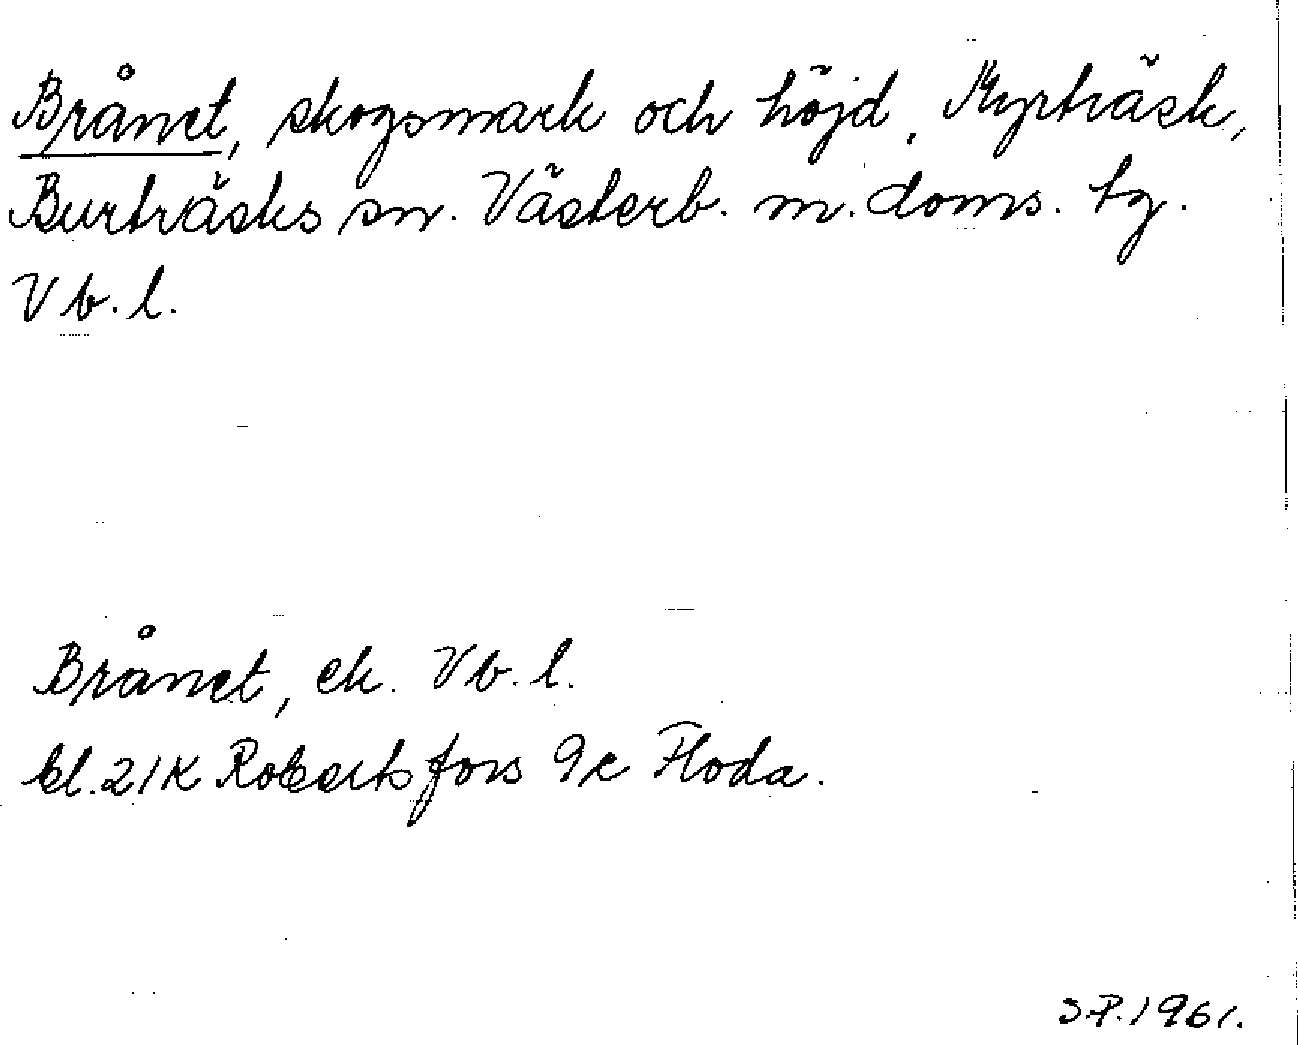 Brånet, skogsmark och höjd, Myrträsk,
Burträsks sn. Västerb. m. doms. tg.
Vb. l.
Brånet, ek. Vb. l.
bl. 21K Robertsfors 9c Floda.
S.P. 1961.